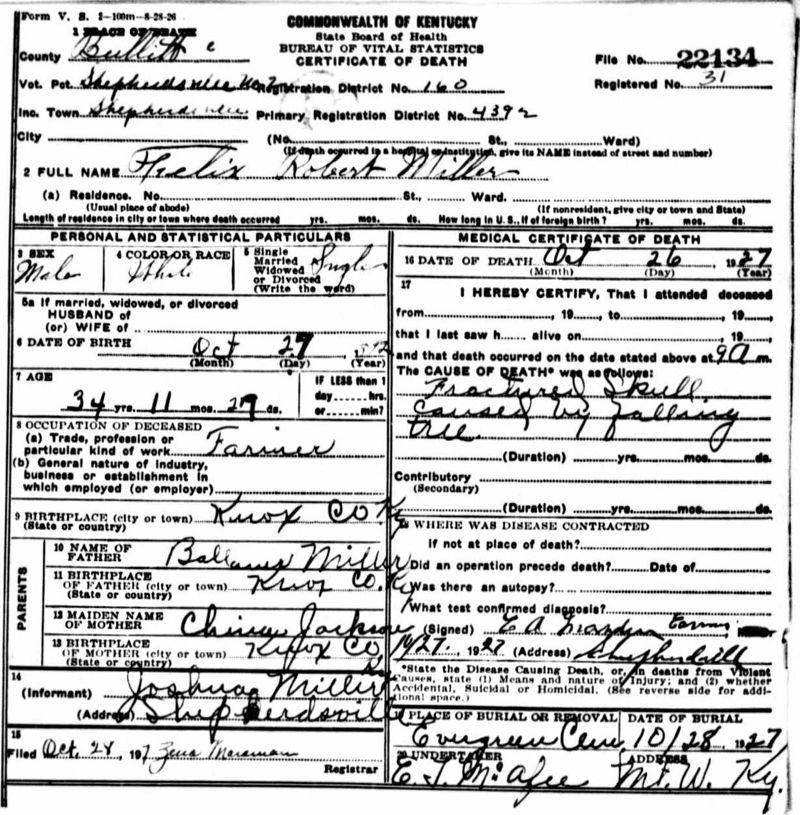 Form V. S. 1-100m-8-28-26
COMMONWEALTH OF KENTUCKY
State Board of Health
BUREAU OF VITAL STATISTICS
CERTIFICATE OF DEATH
1 PLACE OF DEATH
County Bullitt
File No. 22134
Vot. Pct. Shepherdsville No 2 Registration District No. 160
Registered No. 31
Inc. Town Shepherdsville Primary Registration District No. 4392
City (No. St., Ward)
(If death occurred in a hospital or institution, give its NAME instead of street and number)
2 FULL NAME Felix Robert Miller
(a) Residence. No. St., Ward.
(Usual place of abode) (If nonresident, give city or town and State)
Length of residence in city or town where death occurred yrs. mos. ds. How long in U. S., if of foreign birth? yrs. mos. ds.
PERSONAL AND STATISTICAL PARTICULARS
3 SEX Male
4 COLOR OR RACE White
5 Single Married Widowed or Divorced (Write the word) Single
5a If married, widowed, or divorced
HUSBAND of
(or) WIFE of
6 DATE OF BIRTH
Oct 29, 1892
(Month) (Day) (Year)
7 AGE
34 yrs. 11 mos. 29 ds.
IF LESS than 1
day hrs.
or min?
8 OCCUPATION OF DECEASED
(a) Trade, profession or
particular kind of work Farmer
(b) General nature of industry,
business or establishment in
which employed (or employer)
9 BIRTHPLACE (city or town) Knox Co Ky
(State or country)
PARENTS
10 NAME OF
FATHER Miller
11 BIRTHPLACE
OF FATHER (city or town) Knox Co. Ky
(State or country)
12 MAIDEN NAME
OF MOTHER Jackson
13 BIRTHPLACE
OF MOTHER (city or town) Knox Co
(State or country)
14
(Informant) Joshua Miller
(Address) Shepherdsville
15
Filed Oct. 28, 197 Zena Maraman
Registrar
MEDICAL CERTIFICATE OF DEATH
16 DATE OF DEATH Oct 26 1927
(Month) (Day) (Year)
17
I HEREBY CERTIFY, That I attended deceased
from, 19, to, 19,
that I last saw h alive on, 19,
and that death occurred on the date stated above at 9 a m.
The CAUSE OF DEATH* was as follows:
Fractured Skull
caused by falling
tree.
(Duration) yrs. mos. ds.
Contributory
(Secondary)
(Duration) yrs. mos. ds.
18 WHERE WAS DISEASE CONTRACTED
if not at place of death?
Did an operation precede death? Date of
Was there an autopsy?
What test confirmed diagnosis?
(Signed) E A
10/27, 1927 (Address) Shepherdsville
*State the Disease Causing Death, or, in deaths from Violent
Causes, state (1) Means and nature of Injury; and (2) whether
Accidental, Suicidal or Homicidal. (See reverse side for addi-
tional space.)
19 PLACE OF BURIAL OR REMOVAL DATE OF BURIAL
Evergreen Cem. 10/28 1927
20 UNDERTAKER ADDRESS
McAfee Mt. W. Ky.